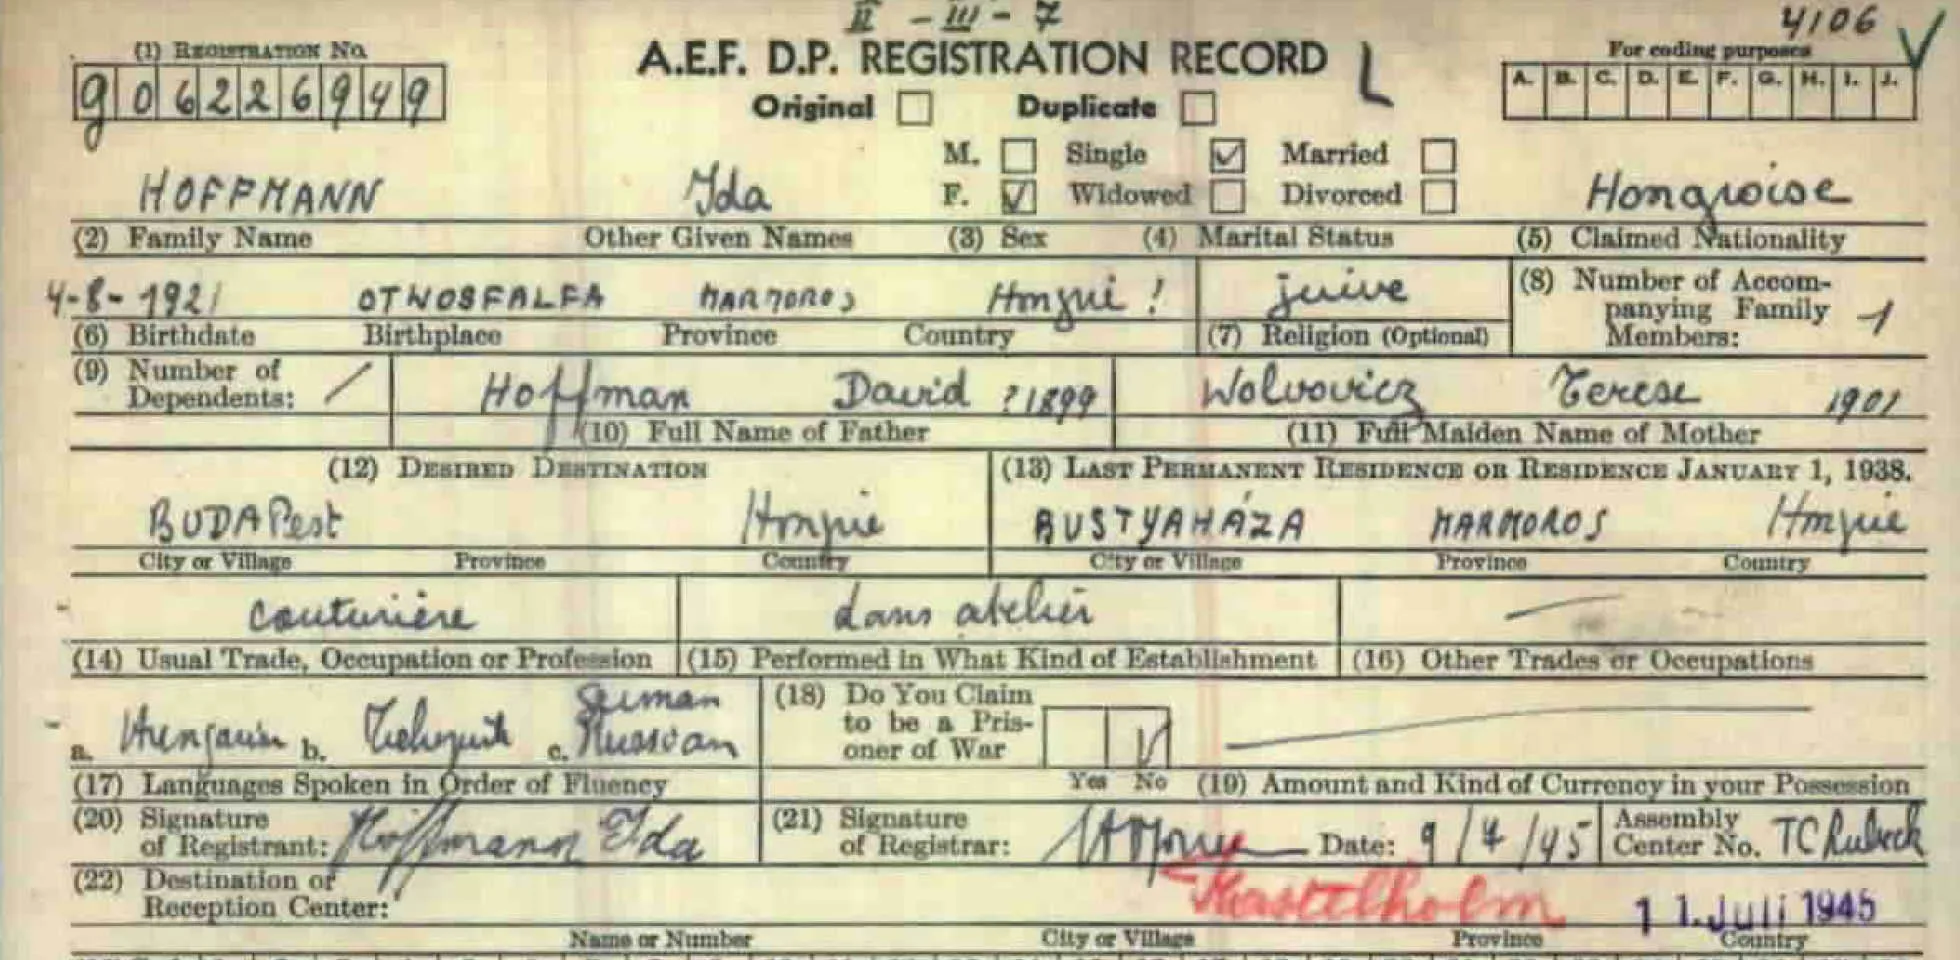 II - III - 7
4106
(1) REGISTRATION No.
A.E.F. D.P. REGISTRATION RECORD L
For coding purposes
A. B. C. D. E. F. G. H. I. J.
g06226949
Original Duplicate
M. Single Married
HOFFMANN Ida F. Widowed Divorced Hongroise
(2) Family Name Other Given Names (3) Sex (4) Marital Status (5) Claimed Nationality
4-8-1921 OTWOSFALFA MARMOROS Hongrie ! juive (8) Number of Accom-
panying Family 1
(6) Birthdate Birthplace Province Country (7) Religion (Optional) Members:
(9) Number of
Dependents: / Hoffman David ? 1899 Wolvovicz Terese 1901
(10) Full Name of Father (11) Full Maiden Name of Mother
(12) DESIRED DESTINATION (13) LAST PERMANENT RESIDENCE OR RESIDENCE JANUARY 1, 1938.
BUDAPest Hongrie BUSTYAHÁZA MARMOROS Hongrie
City or Village Province Country City or Village Province Country
couturière dans atelier —
(14) Usual Trade, Occupation or Profession (15) Performed in What Kind of Establishment (16) Other Trades or Occupations
German (18) Do You Claim
to be a Pris-
a. b. c. Russian oner of War
(17) Languages Spoken in Order of Fluency Yes No (19) Amount and Kind of Currency in your Possession
(20) Signature
of Registrant: Hoffmann Ida (21) Signature
of Registrar: Date: 9/7/45 Assembly
Center No. TC Lubeck
(22) Destination or
Reception Center: Kastelholm 11. Juli 1945
Name or Number City or Village Province Country